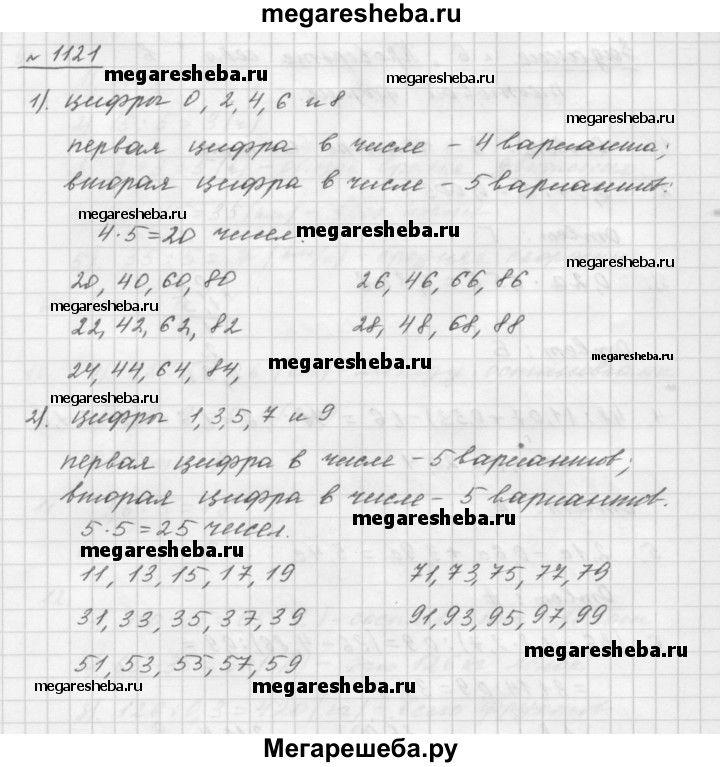 megaresheba.ru
№ 1121
megaresheba.ru
megaresheba.ru
1). цифры 0, 2, 4, 6 и 8
megaresheba.ru
первая цифра в числе – 4 варианта;
вторая цифра в числе – 5 вариантов:
megaresheba.ru
4·5=20 чисел.
megaresheba.ru
megaresheba.ru
20, 40, 60, 80 26, 46, 66, 86
megaresheba.ru
22, 42, 62, 82 28, 48, 68, 88
megaresheba.ru
megaresheba.ru
24, 44, 64, 84,
2). цифры 1, 3, 5, 7 и 9
первая цифра в числе – 5 вариантов;
вторая цифра в числе – 5 вариантов.
megaresheba.ru
5·5=25 чисел.
megaresheba.ru
11, 13, 15, 17, 19 71, 73, 75, 77, 79
31, 33, 35, 37, 39 91, 93, 95, 97, 99
megaresheba.ru
51, 53, 55, 57, 59
megaresheba.ru
megaresheba.ru
megaresheba.ru
Мегарешеба.ру